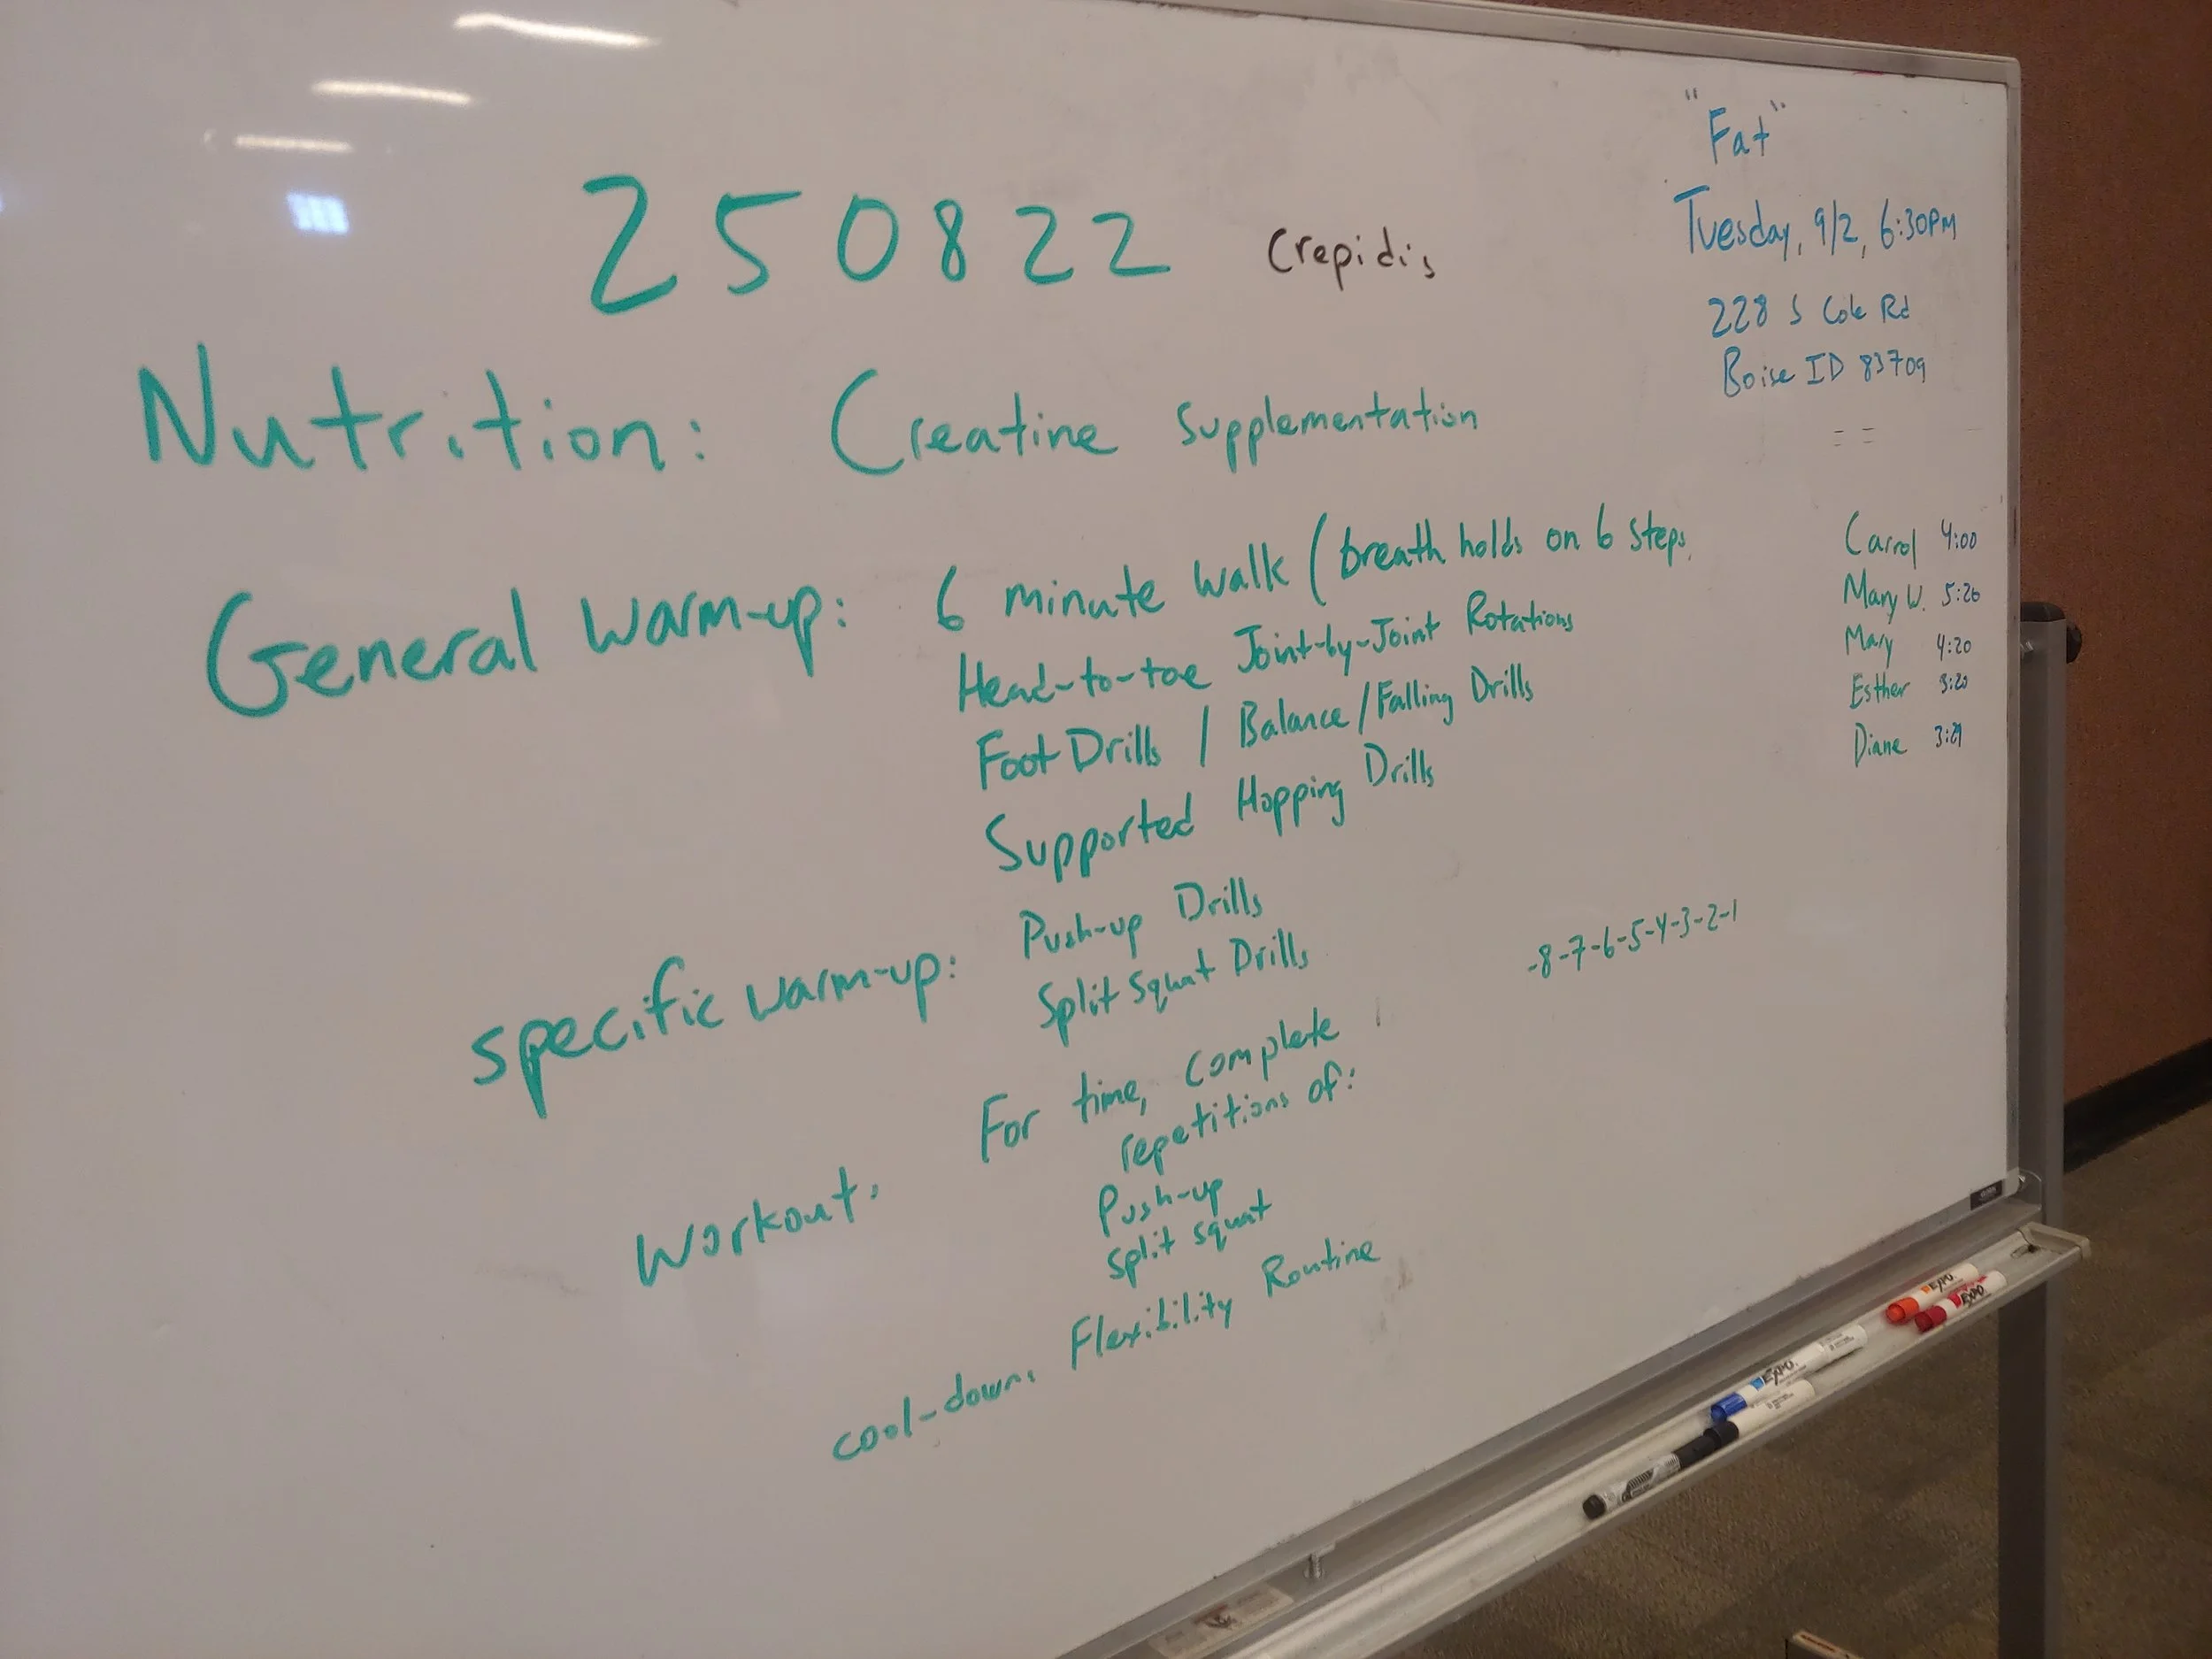 250822 Crepidis
Nutrition: Creatine Supplementation
General warm-up: 6 minute walk (breath holds on 6 steps
Head-to-toe Joint-by-Joint Rotations
Foot Drills / Balance/Falling Drills
Supported Hopping Drills
specific warm-up: Push-up Drills
Split Squat Drills
Workout: For time, complete
repetitions of:
Push-up
split squat
cool-down: Flexibility Routine
"Fat"
Tuesday, 9/2, 6:30PM
228 S Cole Rd
Boise ID 83709
= =
Carrol 4:00
Mary W. 5:26
Mary 4:20
Esther 3:20
Diane
-8-7-6-5-4-3-2-1
EXPO
EXPO
EXPO